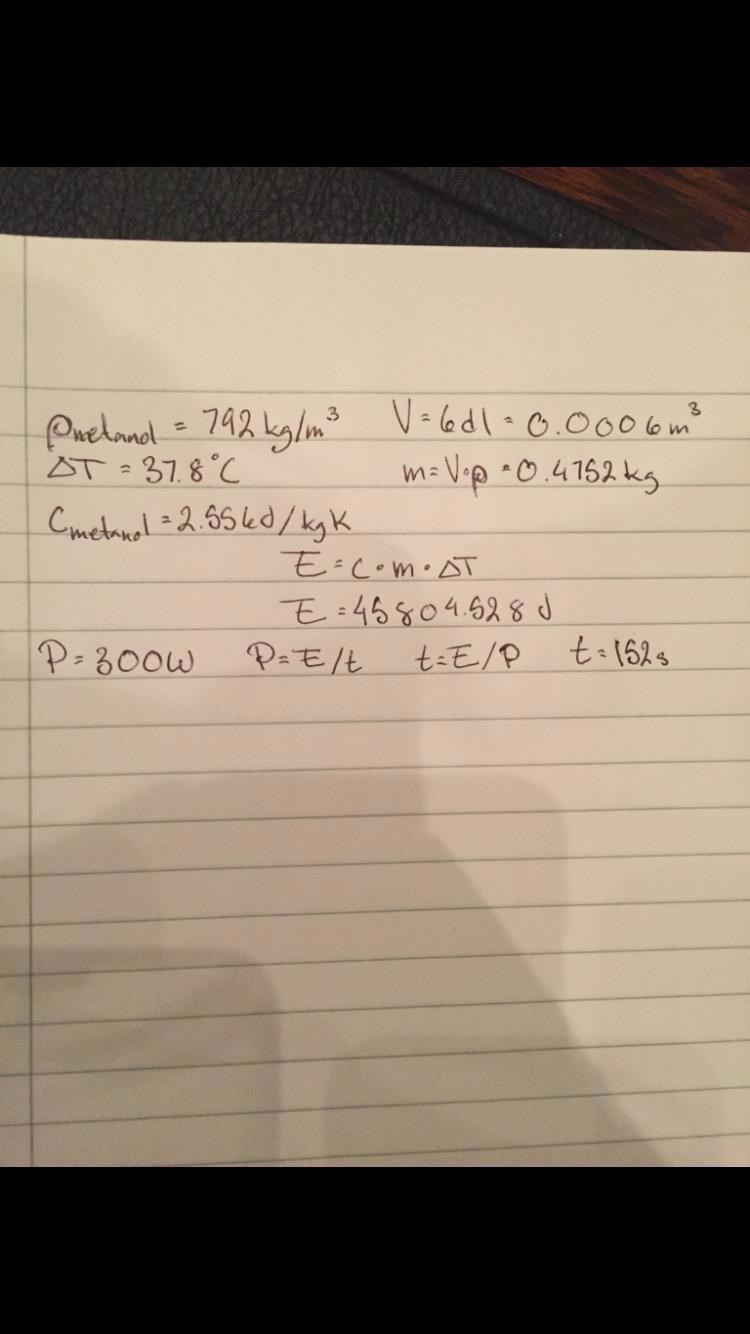 ρmetanol = 792 kg/m³ V = 6dl = 0.0006m³
ΔT = 37.8°C m = V·ρ = 0.4752kg
Cmetanol = 2.55kJ/kgK
E = c·m·ΔT
E = 45804.528 J
P = 300W P = E/t t = E/P t = 152s